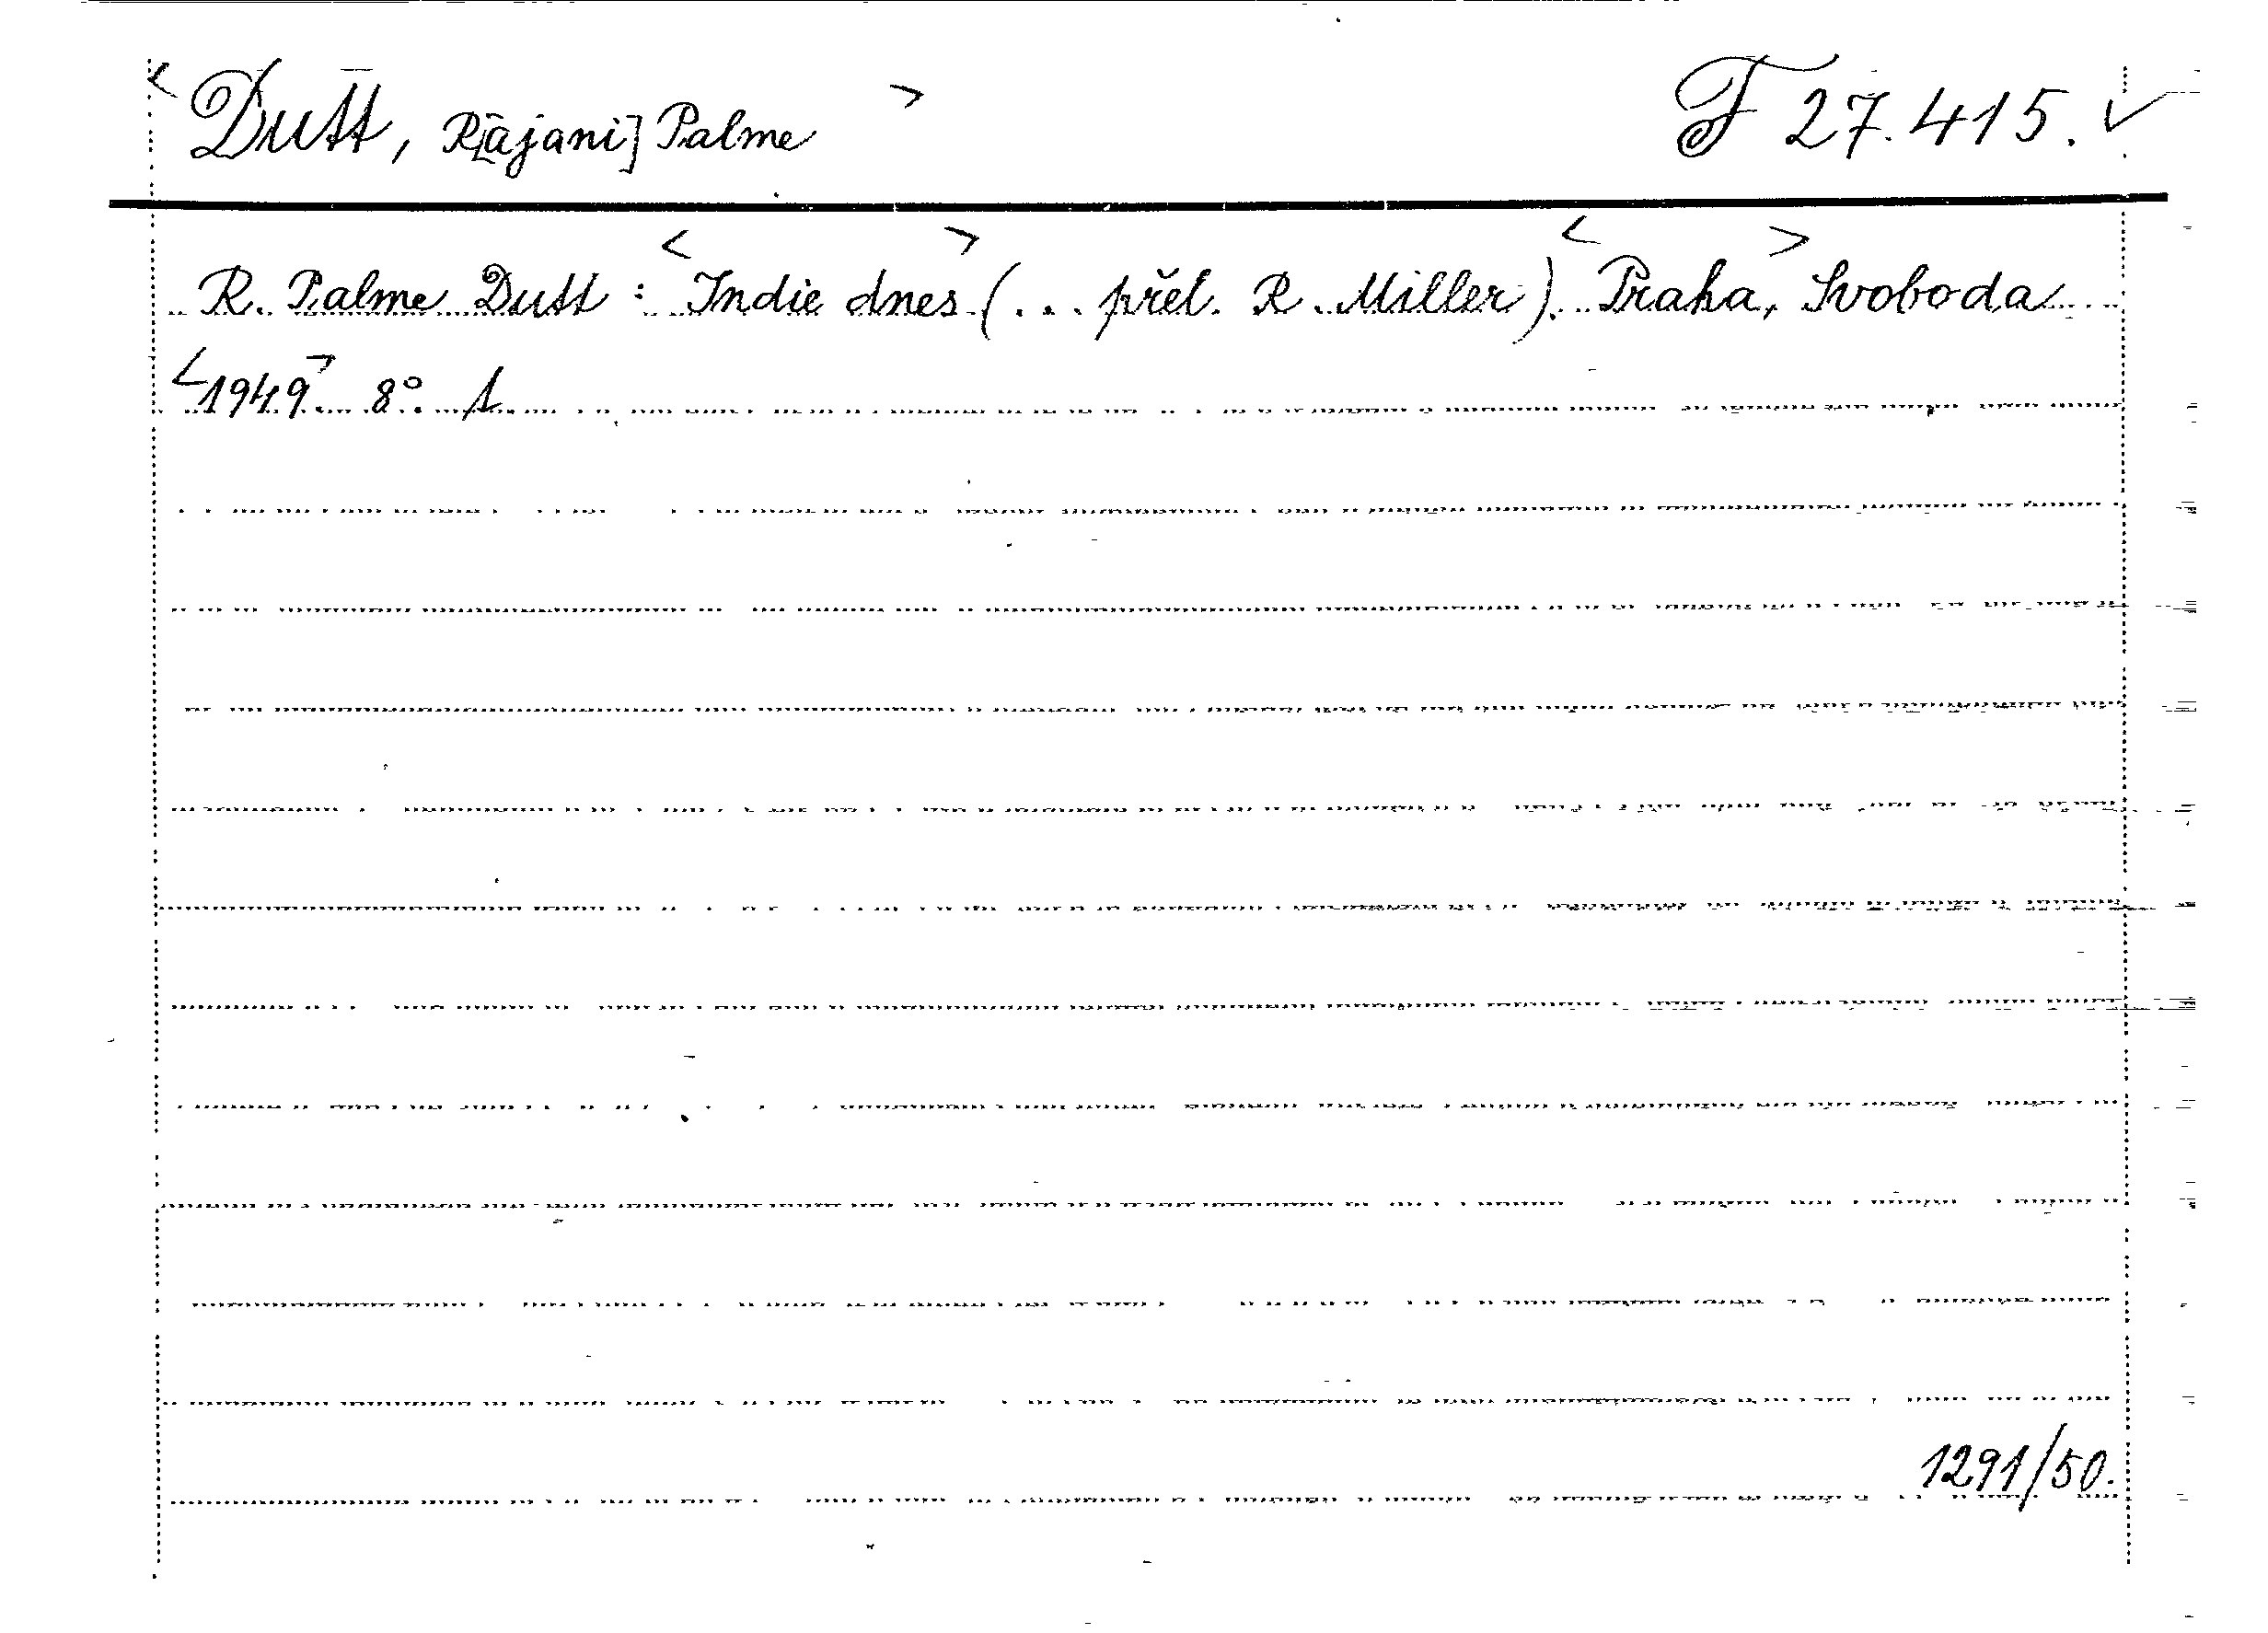 <Dutt, R[ajani] Palme> F 27.415. ✓
R. Palme Dutt: <Indie dnes> (... přel. R. Miller). <Praha,> Svoboda
<1949>. 8°. 1.
1291/50.